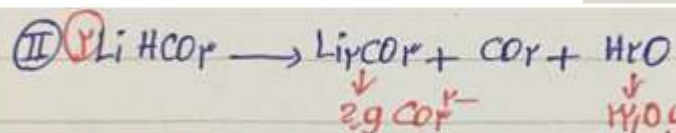 II ۲Li HCO۳ → Li۲CO۳ + CO۲ + H۲O
↓ ↓
?g CO۳²⁻